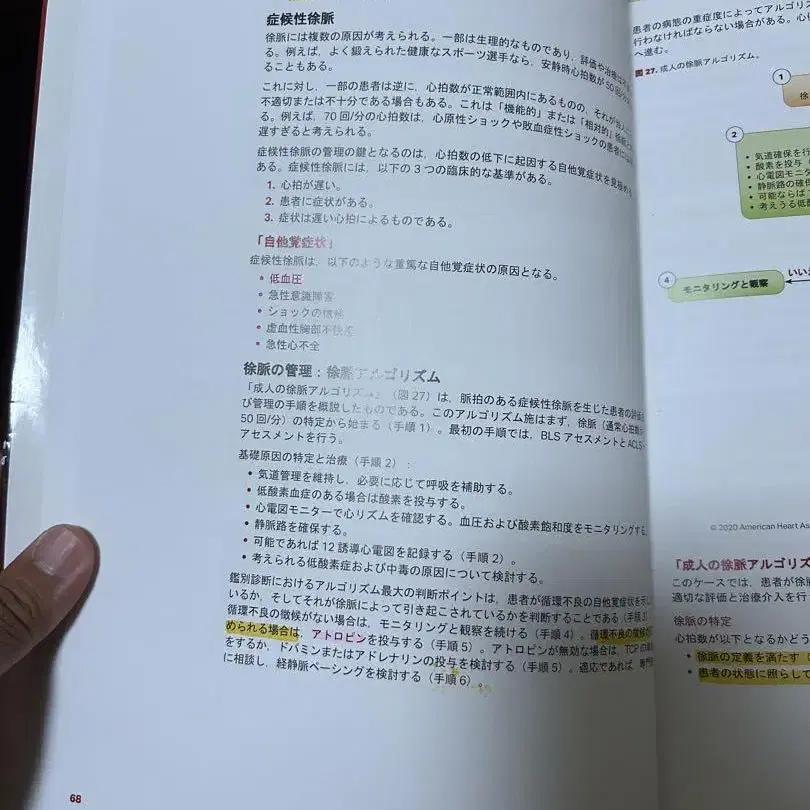 症候性徐脈
徐脈には複数の原因が考えられる。一部は生理的なものであり、評価や治療は
る。例えば、よく鍛えられた健康なスポーツ選手なら、安静時心拍数が50回/分
ることもある。
これに対し、一部の患者は逆に、心拍数が正常範囲内にあるものの、それが
不適切または不十分である場合もある。これは「機能的」または「相対的」徐脈
る。例えば、70回/分の心拍数は、心原性ショックや敗血症性ショックの患者には
遅すぎると考えられる。
症候性徐脈の管理の鍵となるのは、心拍数の低下に起因する自他覚症状を見極める
ある。症候性徐脈には、以下の3つの臨床的な基準がある。
1. 心拍が遅い。
2. 患者に症状がある。
3. 症状は遅い心拍によるものである。
「自他覚症状」
症候性徐脈は、以下のような重篤な自他覚症状の原因となる。
• 低血圧
• 急性意識障害
• ショックの徴候
• 虚血性胸部不快感
• 急性心不全
徐脈の管理：徐脈アルゴリズム
「成人の徐脈アルゴリズム」（図27）は、脈拍のある症候性徐脈を生じた患者の評価
び管理の手順を概説したものである。このアルゴリズム施はまず、徐脈（通常心拍数
50回/分）の特定から始まる（手順1）。最初の手順では、BLSアセスメントとACLS
アセスメントを行う。
基礎原因の特定と治療（手順2）：
• 気道管理を維持し、必要に応じて呼吸を補助する。
• 低酸素血症のある場合は酸素を投与する。
• 心電図モニターで心リズムを確認する。血圧および酸素飽和度をモニタリングする。
• 静脈路を確保する。
• 可能であれば12誘導心電図を記録する（手順2）。
• 考えられる低酸素症および中毒の原因について検討する。
鑑別診断におけるアルゴリズム最大の判断ポイントは、患者が循環不良の自他覚症状を示し
いるか、そしてそれが徐脈によって引き起こされているかを判断することである（手順3）
循環不良の徴候がない場合は、モニタリングと観察を続ける（手順4）。循環不良の徴候が
められる場合は、アトロピンを投与する（手順5）。アトロピンが無効な場合は、TCPの
をするか、ドパミンまたはアドレナリンの投与を検討する（手順5）。適応であれば、専門
に相談し、経静脈ペーシングを検討する（手順6）。
68
患者の病態の重症度によってアルゴリズ
行わなければならない場合がある。心
へ進む。
図27. 成人の徐脈アルゴリズム。
1
徐
2
• 気道確保を行
• 酸素を投与（
• 心電図モニタ
• 静脈路の確保
• 可能ならば
• 考えうる低酸
4
モニタリングと観察
いい
© 2020 American Heart As
「成人の徐脈アルゴリズ
このケースでは、患者が徐
適切な評価と治療介入を行
徐脈の特定
心拍数が以下となるかどう
• 徐脈の定義を満たす（
• 患者の状態に照らして